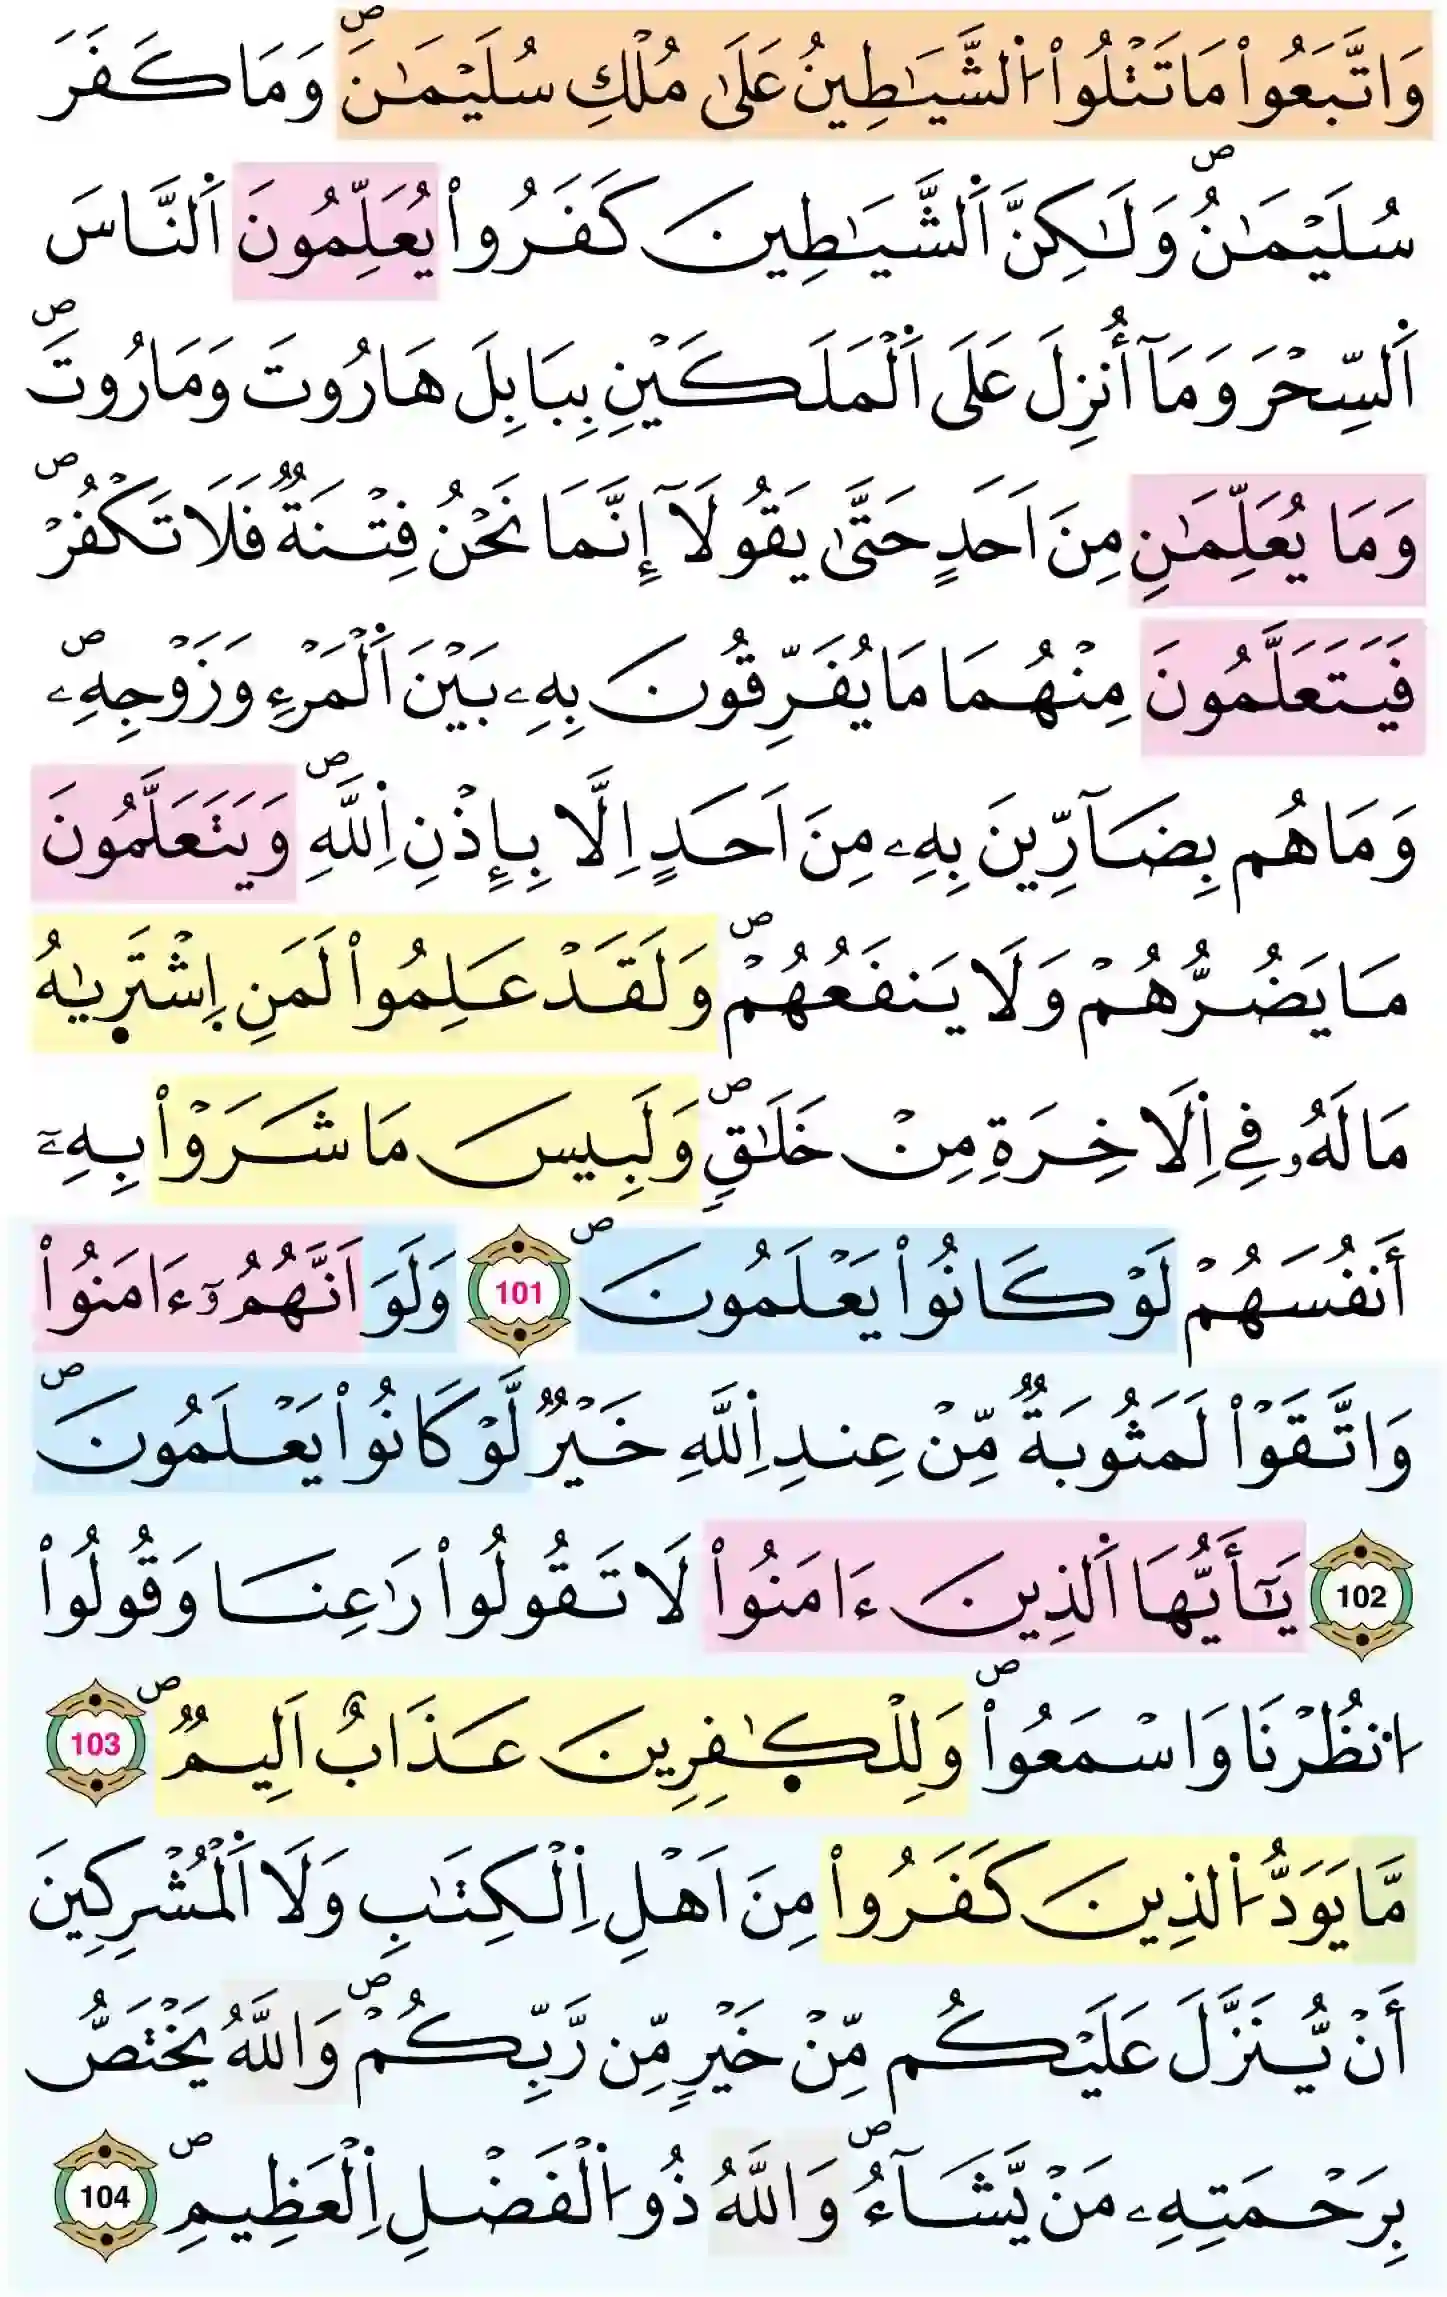 وَاتَّبَعُواْ مَا تَتْلُواْ اُ۬لشَّيَٰطِينُ عَلَىٰ مُلْكِ سُلَيْمَٰنَۖ وَمَا كَفَرَ
سُلَيْمَٰنُۖ وَلَٰكِنَّ اَ۬لشَّيَٰطِينَ كَفَرُواْ يُعَلِّمُونَ اَ۬لنَّاسَ
اَ۬لسِّحْرَ وَمَآ أُنزِلَ عَلَى اَ۬لْمَلَكَيْنِ بِبَابِلَ هَارُوتَ وَمَارُوتَۖ
وَمَا يُعَلِّمَٰنِ مِنَ اَحَدٍ حَتَّىٰ يَقُولَآ إِنَّمَا نَحْنُ فِتْنَةٞ فَلَا تَكْفُرْۖ
فَيَتَعَلَّمُونَ مِنْهُمَا مَا يُفَرِّقُونَ بِهِۦ بَيْنَ اَ۬لْمَرْءِ وَزَوْجِهِۦۖ
وَمَا هُم بِضَآرِّينَ بِهِۦ مِنَ اَحَدٍ اِلَّا بِإِذْنِ اِ۬للَّهِۖ وَيَتَعَلَّمُونَ
مَا يَضُرُّهُمْ وَلَا يَنفَعُهُمْۖ وَلَقَدْ عَلِمُواْ لَمَنِ اِ۪شْتَر۪يٰهُ
مَا لَهُۥ فِي اِ۬لَاخِرَةِ مِنْ خَلَٰقٖۖ وَلَبِيسَ مَا شَرَوْاْ بِهِۦٓ
أَنفُسَهُمْ لَوْ كَانُواْ يَعْلَمُونَۖ 101 وَلَوَ اَنَّهُمُۥٓ ءَامَنُواْ
وَاتَّقَوْاْ لَمَثُوبَةٞ مِّنْ عِندِ اِ۬للَّهِ خَيْرٞ لَّوْ كَانُواْ يَعْلَمُونَۖ
102 يَٰٓأَيُّهَا اَ۬لذِينَ ءَامَنُواْ لَا تَقُولُواْ رَٰعِنَا وَقُولُواْ
اُ۟نظُرْنَا وَاسْمَعُواْۖ وَلِلْكٰ۪فِرِينَ عَذَابٌ اَلِيمٞۖ 103
مَّا يَوَدُّ اُ۬لذِينَ كَفَرُواْ مِنَ اَهْلِ اِ۬لْكِتَٰبِ وَلَا اَ۬لْمُشْرِكِينَ
أَنْ يُّنَزَّلَ عَلَيْكُم مِّنْ خَيْرٖ مِّن رَّبِّكُمْۖ وَاللَّهُ يَخْتَصُّ
بِرَحْمَتِهِۦ مَنْ يَّشَآءُۖ وَاللَّهُ ذُو اُ۬لْفَضْلِ اِ۬لْعَظِيمِۖ 104